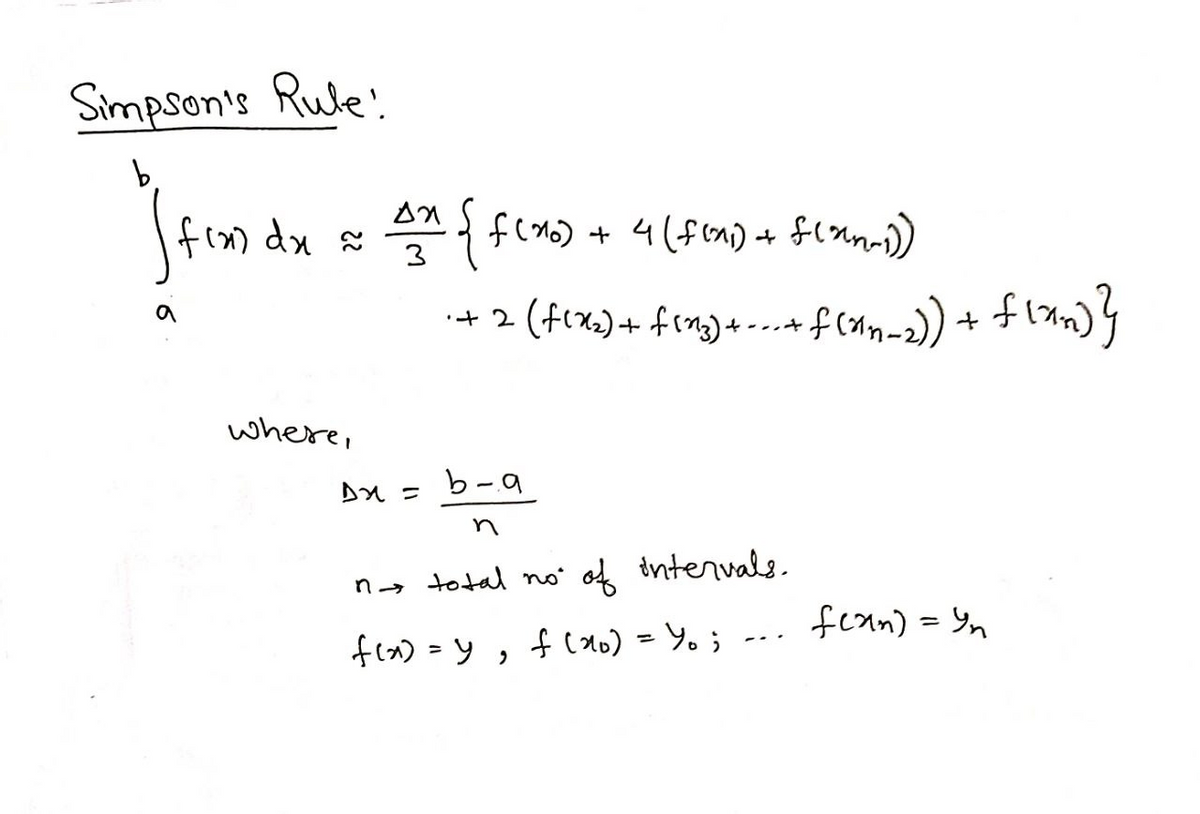 Simpson's Rule:
∫_a^b f(x) dx ≈ Δx/3 { f(x₀) + 4(f(x₁) + f(xₙ₋₁))
+ 2 (f(x₂) + f(x₃) + ... + f(xₙ₋₂)) + f(xₙ)}
where,
Δx = (b-a)/n
n → total no. of intervals.
f(x) = y , f(x₀) = y₀ ; ... f(xₙ) = yₙ